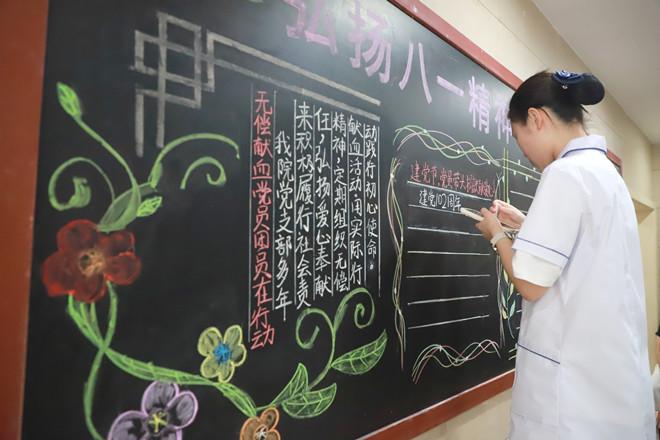 弘扬八一精神
无偿献血党员团员在行动
我院党支部多年
来积极履行社会责
任,弘扬爱心奉献
精神,定期组织无偿
献血活动,用实际行
动践行初心使命。
建党节,党员带头
建党102周年